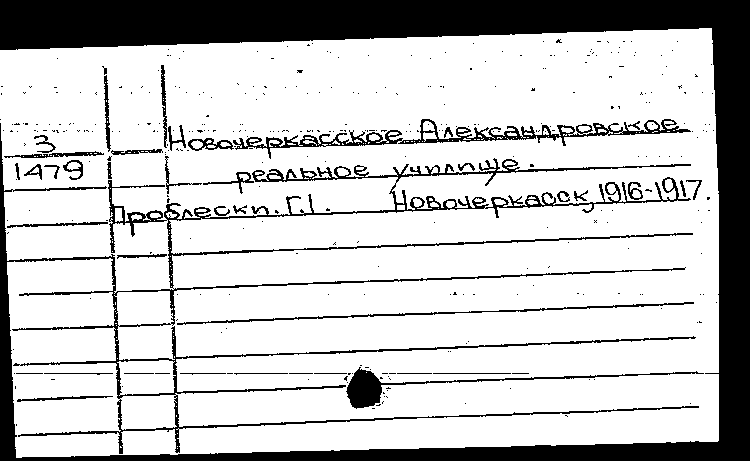 3
1479
Новочеркасское Александровское
реальное училище.
Проблески. Г.I. Новочеркасск, 1916-1917.